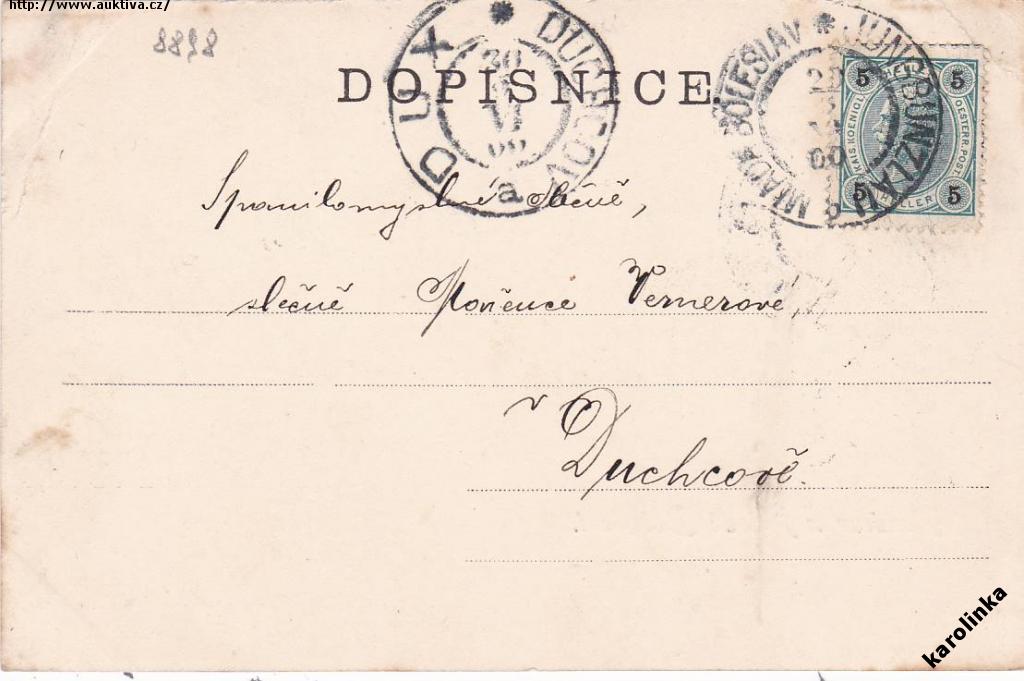 http://www.auktiva.cz/
8898
DOPISNICE.
DUX * DUCHCOV
30
VI
00
a
MLADÁ BOLESLAV * JUNGBUNZLAU
00
5 HELLER 5
KAIS. KOENIGL. OESTERR. POST.
5 HELLER 5
Spanilomyslné slečně,
slečně Mařence Vernerové,
v
Duchcově.
karolinka